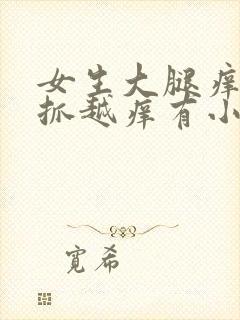 女生大腿痒
抓越痒有小
宽希